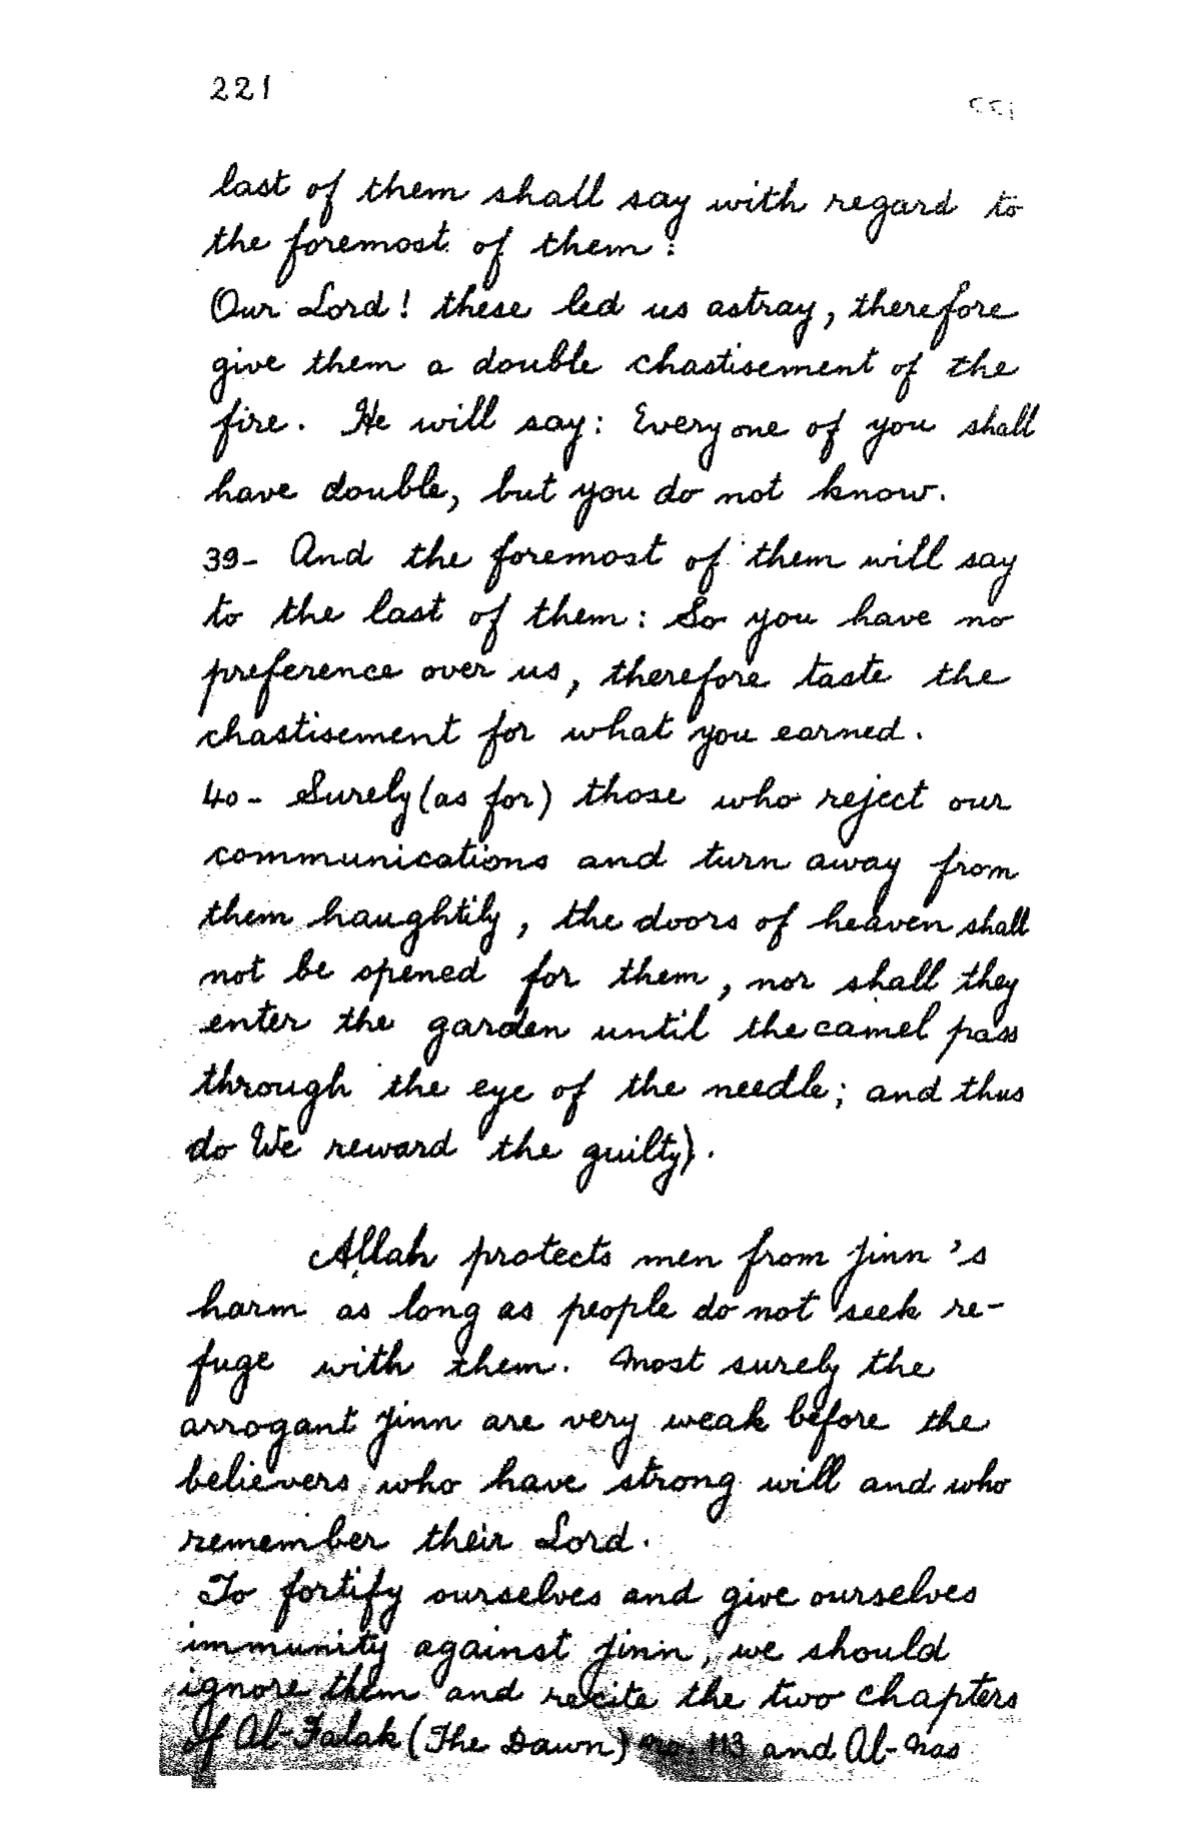 221
last of them shall say with regard to
the foremost of them :
Our Lord! these led us astray, therefore
give them a double chastisement of the
fire. He will say: Every one of you shall
have double, but you do not know.
39- And the foremost of them will say
to the last of them: So you have no
preference over us, therefore taste the
chastisement for what you earned.
40- Surely (as for) those who reject our
communications and turn away from
them haughtily, the doors of heaven shall
not be opened for them, nor shall they
enter the garden until the camel pass
through the eye of the needle; and thus
do We reward the guilty).
Allah protects men from Jinn's
harm as long as people do not seek re-
fuge with them. Most surely the
arrogant Jinn are very weak before the
believers who have strong will and who
remember their Lord.
To fortify ourselves and give ourselves
immunity against Jinn, we should
ignore them and recite the two chapters
of Al-Falak (The Dawn) no. 113 and Al-Nas